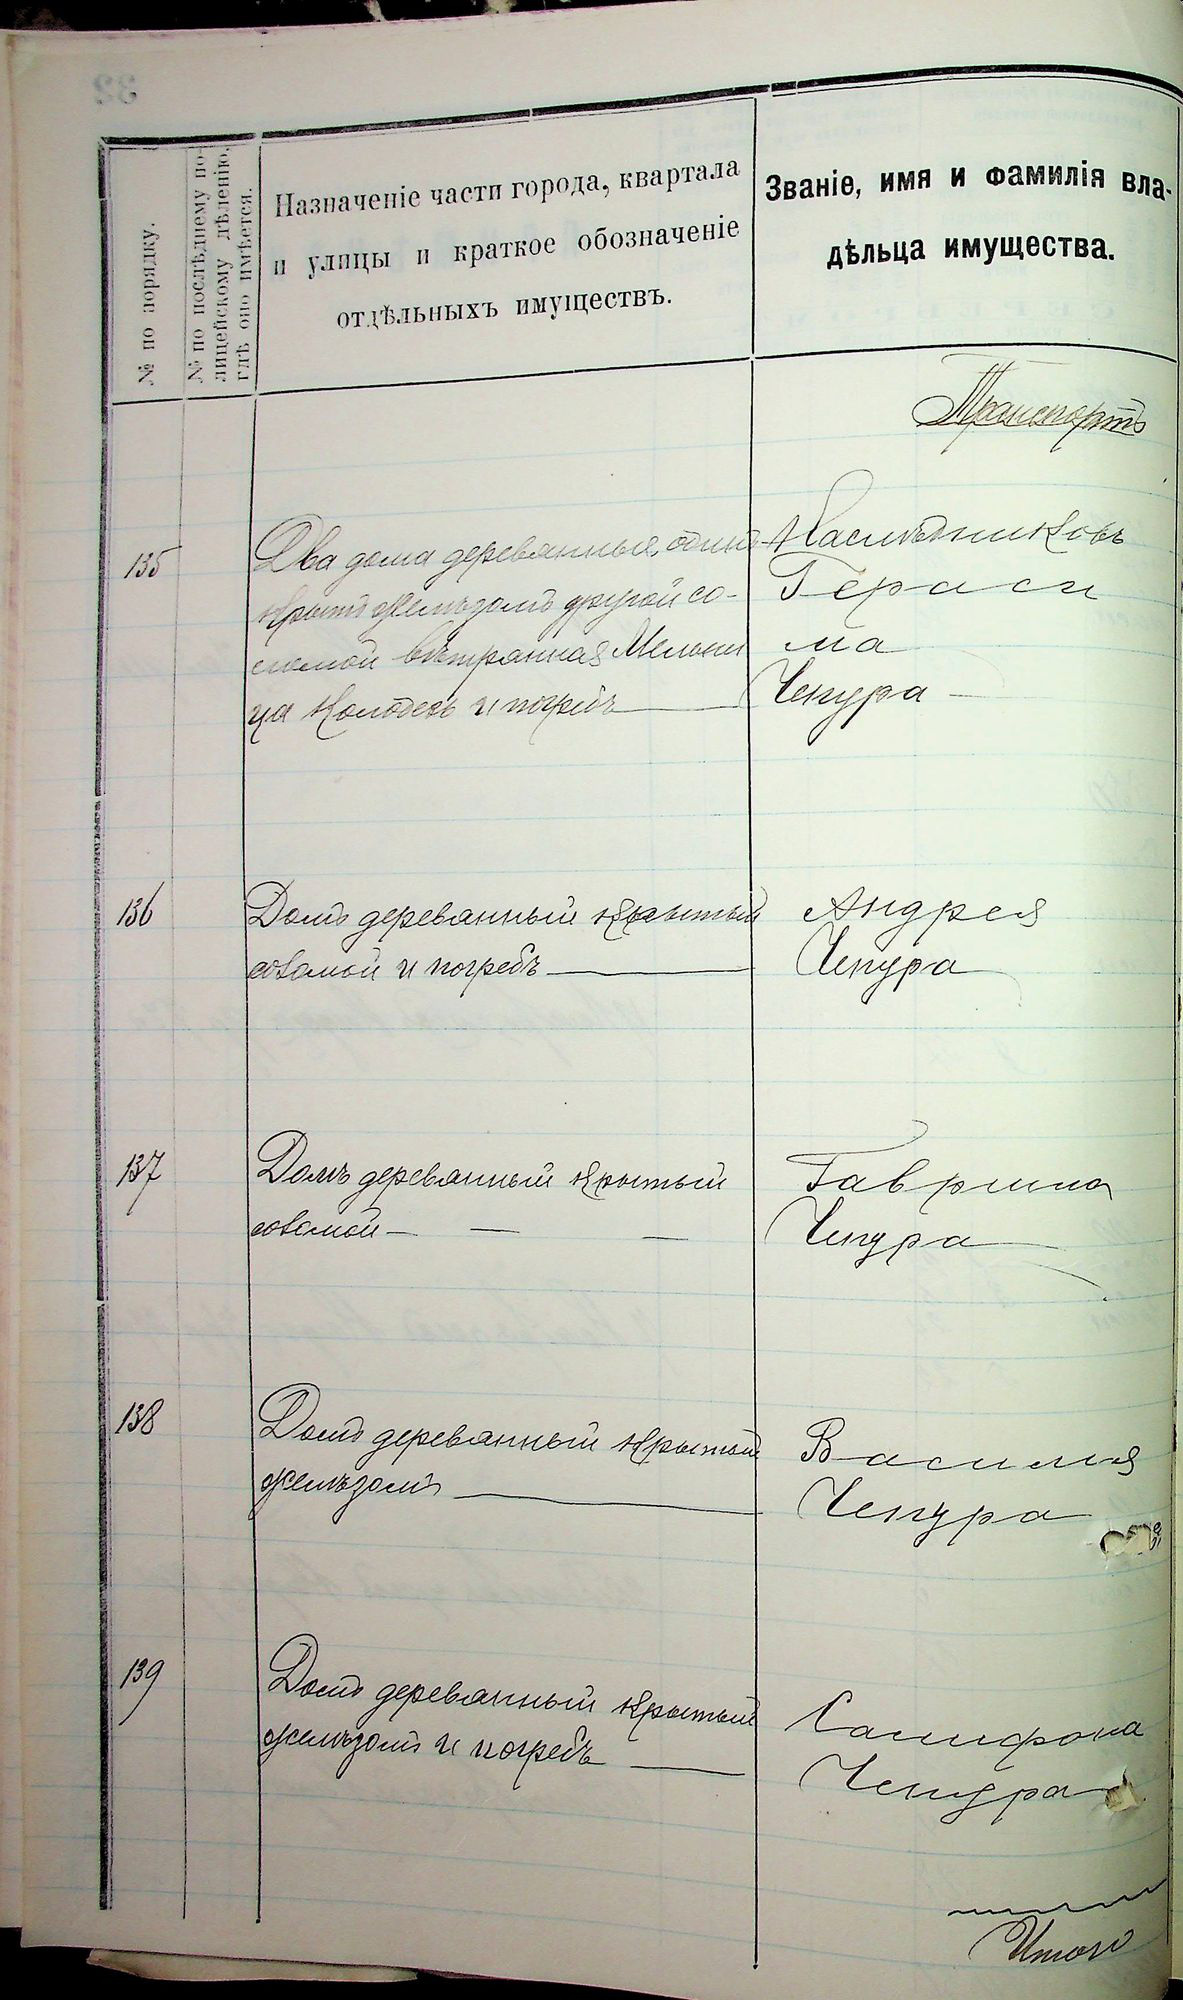 № по порядку.
№ по послѣднему по-
лицейскому дѣленію,
гдѣ оно имѣется.
Назначеніе части города, квартала
и улицы и краткое обозначеніе
отдѣльныхъ имуществъ.
Званіе, имя и фамилія вла-
дѣльца имущества.
Транспортъ
135
Два дома деревянные, одинъ
крытъ желѣзомъ другой со-
ломой вѣтрянная Мельни
ца колодезь и погребъ
Наслѣдниковъ
Гераси
ма
Чепура
136
Домъ деревянный крытый
соломой и погребъ
Андрея
Чепура
137
Домъ деревянный крытый
соломой
Гаврила
Чепура
138
Домъ деревянный крытый
желѣзомъ
Василия
Чепура
139
Домъ деревянный крытый
желѣзомъ и погребъ
Чепура
Итого